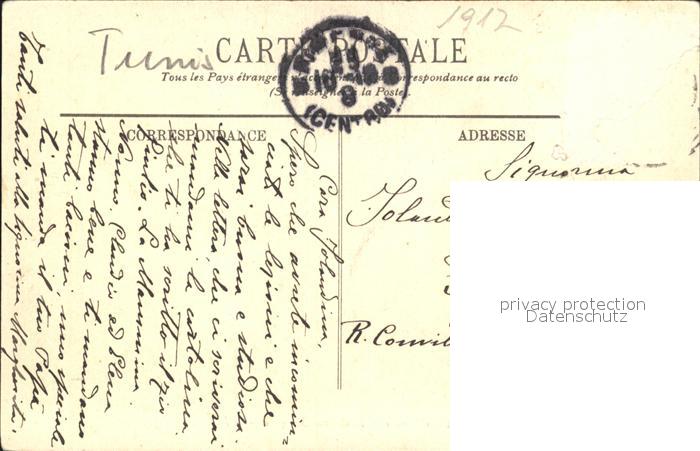 1912
Tunis
CARTE POSTALE
Tous les Pays étrangers n'acceptent pas la Correspondance au recto
(Se renseigner à la Poste).
(CENTRAL)
CORRESPONDANCE
ADRESSE
Cara Jolandina,
Spero che avrete incomin-
ciato le lezioni e che
sarai buona e studiosa.
Nella lettera che ci scriverai
mandami la cartolina
che ti ha scritto il zio
Giulio. La Mammina
Nonno, Claudio ed Elena
stanno bene e ti mandano
tanti bacioni, uno speciale
ti manda il tuo Papà
tanti saluti alla Signorina Margherita.
Signorina
Joland
R. Convi
privacy protection
Datenschutz